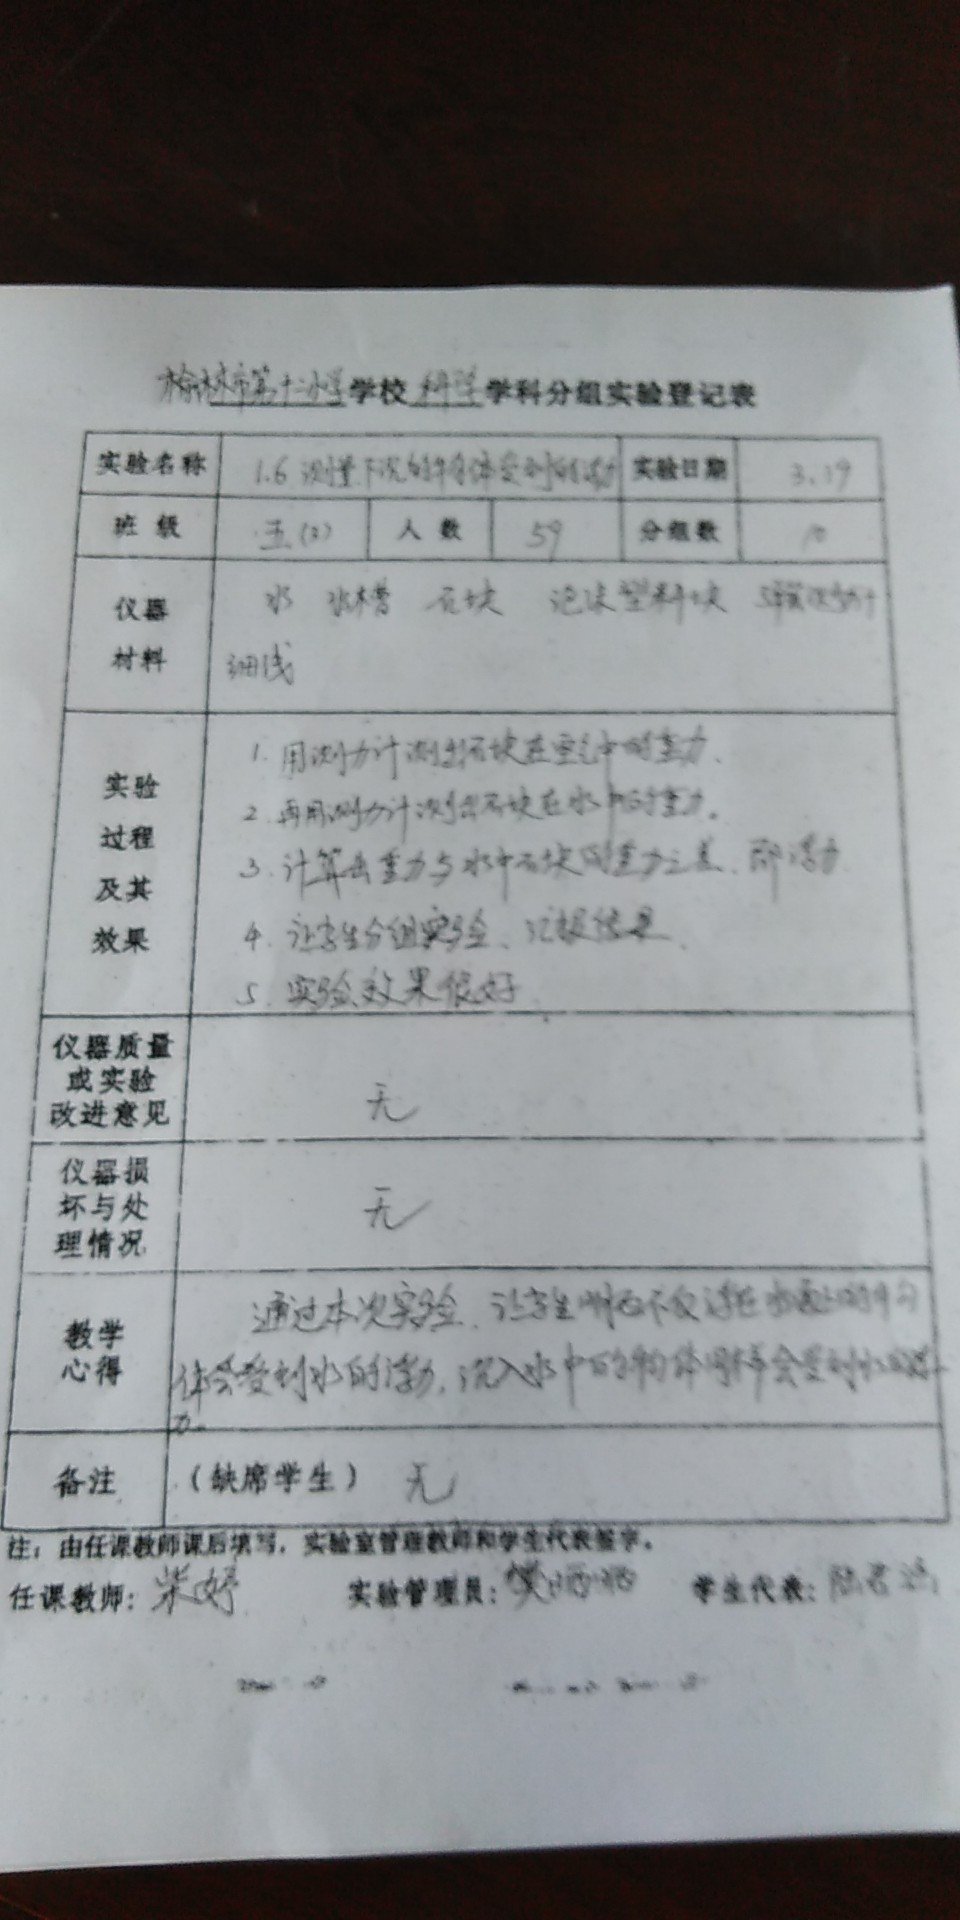 榆林市第十二小学学校 科学 学科分组实验登记表
实验名称 1.6 测量下沉的物体受到的浮力 实验日期 3.19
班级 五(2) 人数 59 分组数 10
仪器 水 水槽 石块 泡沫塑料块 弹簧测力计
材料 细线
1. 用测力计测出石块在空气中的重力.
实验
2. 再用测力计测出石块在水中的重力.
过程
3. 计算出重力与水中石块的重力之差、即浮力
及其
效果 4. 让学生分组实验、汇报结果.
5. 实验效果很好.
仪器质量
或实验
改进意见 无
仪器损
坏与处 无
理情况
通过本次实验、让学生明白不仅浮在水面上的物
教学
心得 体会受到水的浮力, 沉入水中的物体同样会受到水的浮
力。
备注 (缺席学生) 无
注：由任课教师课后填写，实验室管理教师和学生代表签字。
任课教师：柴妤 实验管理员：樊 学生代表：